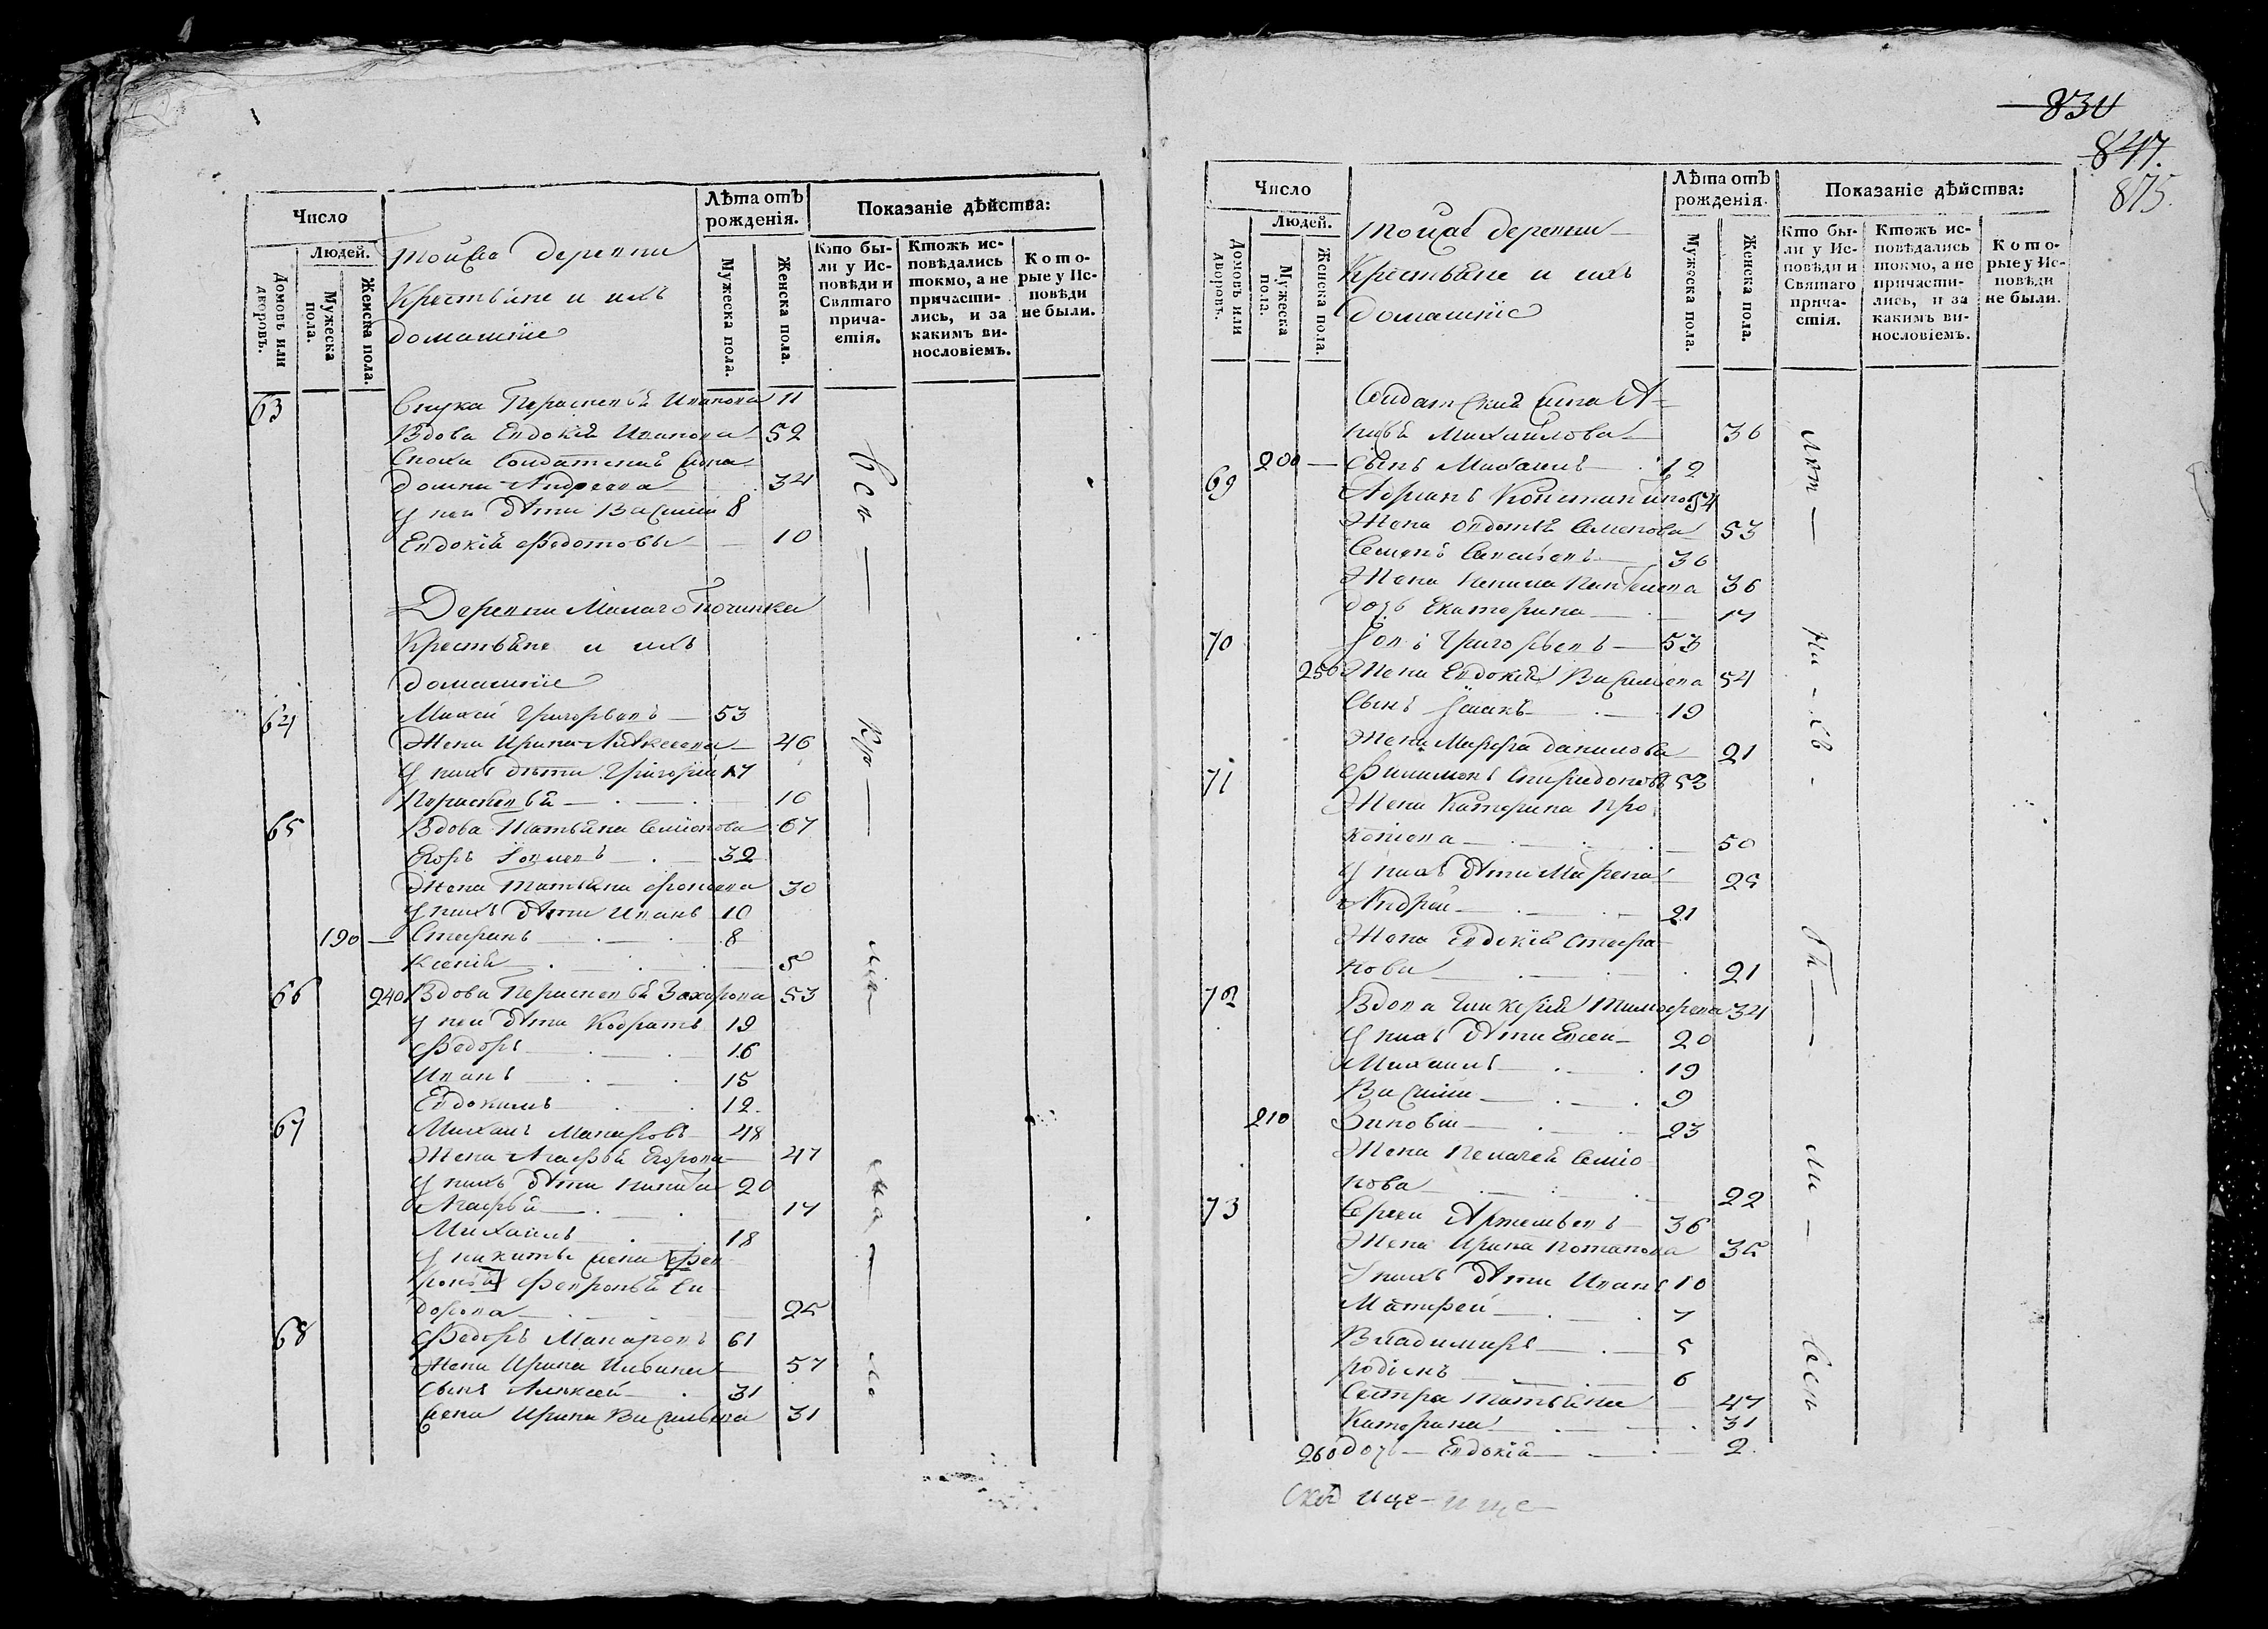 830
847.
875.
Число
Людей.
Домовъ или дворовъ.
Мужеска пола.
Женска пола.
тойже деревни
Крестьяне и ихъ
домашніе
Лѣта отъ рожденія.
Мужеска пола.
Женска пола.
Показаніе дѣйства:
Кто бы-
ли у Ис-
повѣди и
Святаго
прича-
стія.
Ктожъ ис-
повѣдались
токмо, а не
причасти-
лись, и за
какимъ ви-
нословіемъ.
Кото-
рые у Ис-
повѣди
не были.
63 Внука Параскевья Иванова 11
Вдова Евдокія Иванова 52
Сноха Солдатская жена
Домна Андреева 34
у неи дѣти Василии 8
Евдокія Федотовы 10
Деревни Малаго Починка
Крестьяне и ихъ
домашніе
64 Михей Григорьевъ 53
Жена Ирина Алексеева 46
у нихъ дѣти Григорій 17
Параскевья 16
65 Вдова Татьяна Семіонова 67
Егоръ Іовлевъ 32
Жена Татьяна 30
у нихъ дѣти Иванъ 10
190 Стефанъ 8
Ксенія 5
66 240 Вдова Параскевья Захарова 53
у неи дѣти Кодратъ 19
Федоръ 16
Иванъ 15
Евдокимъ 12
67 Михаилъ Макаровъ 48
Жена Агафья Егорова 47
у нихъ дѣти Никита 20
Агафья 17
Михаилъ 18
у Никиты жена Фев
ронья Февронья Си
дорова 25
68 Федоръ Макаровъ 61
Жена Ирина Ильина 57
Сынъ Алексей 31
жена Ирина Васильева 31
Число
Людей.
Домовъ или дворовъ.
Мужеска пола.
Женска пола.
тойже деревни
Крестьяне и ихъ
домашніе
Лѣта отъ рожденія.
Мужеска пола.
Женска пола.
Показаніе дѣйства:
Кто бы-
ли у Ис-
повѣди и
Святаго
прича-
стія.
Ктожъ ис-
повѣдались
токмо, а не
причасти-
лись, и за
какимъ ви-
нословіемъ.
Кото-
рые у Ис-
повѣди
не были.
Солдатская жена А-
Михайлова 36
200 Сынъ Михаилъ 12
69 Адріанъ Константиновъ 54
Жена Овдотья Семенова 53
Семенъ Савельевъ 36
Жена 36
дочь Екатерина 17
70 Іовъ Григорьевъ 53
250 Жена Евдокія Васильева 54
Сынъ 19
Жена Марфа Данилова 21
71 Филимонъ Спиридоновъ 53
Жена Катерина Про
копіева 50
у нихъ дѣти 25
Андрей 21
Жена Евдокія Стефа
нова 21
72 Вдова Гликерія Тимофеева 34
у нихъ дѣти Евсеи 20
Михаилъ 19
Василии 9
210 Зиновеи 23
Жена Пелагея Семіо
нова 22
73 Артемьевъ 36
Жена Ирина Потапова 35
у нихъ дѣти Иванъ 10
Матфей 7
Владимиръ 5
Родіонъ 6
Сестра Татьяна 47
Катерина 31
260 дочь Евдокія 2